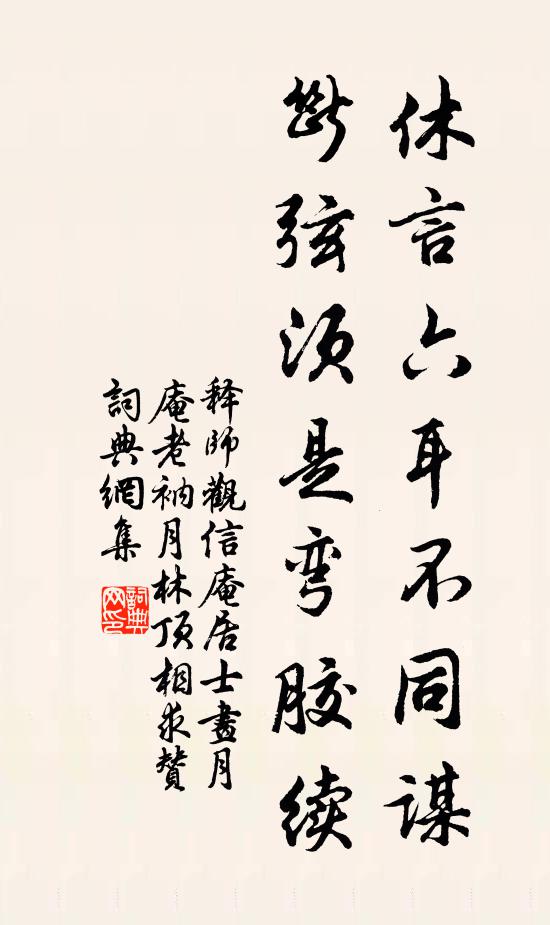 休言六耳不同谋
断弦须是弯胶续
释师觀信庵居士畫月
庵老衲月林顶相求赞
詞典網集
詞典网印